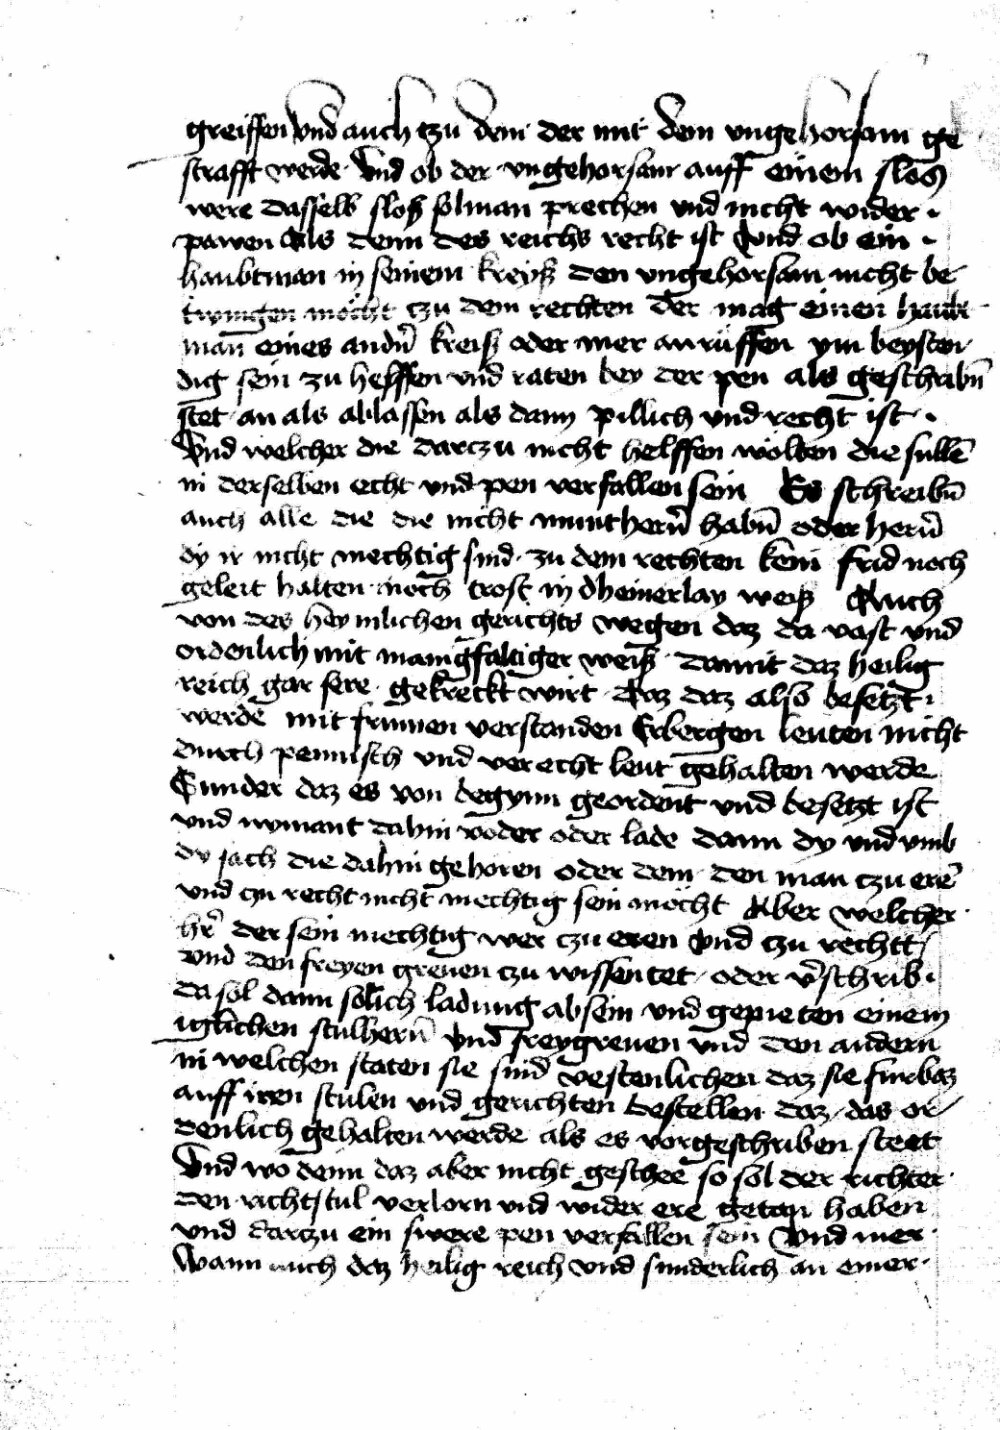 greiffen vnd auch tzu dem der mit dem vngehorsam ge
strafft werde · Und ob der vngehorsam auff einem sloß
were dasselb sloß sol man prechen vnd nicht wider ·
pawen Als denn des reichs recht ist Vnd ob ein ·
haubtman in seinem kreyß den vngehorsam nicht be
twingen möcht czu dem rechten der mag einen haubt
man eines andn̄ kreiß oder mer anrüffen ym beysten
dig sein zu helffen vnd raten bey der pen als geschribn̄
stet an als ablassen als dann pillich vnd recht ist ·
Vnd welcher die darczu nicht helffen wölten die sullē
in derselben echt vnd pen verfallen sein Es schreibn̄
auch alle die die nicht munthern̄ habn̄ oder hern̄
dy ir nicht mechtig sind · zu dem rechten kein frid noch
geleit halten noch trost in dheinerlay weiß Auch
von des heymlichen gerichts wegen daz da vast vnd
ordenlich mit manigfaltiger weiß · damit daz heilig
reich gar sere gekreckt wirt · Daz daz also besetzt ·
werde mit frumen verstanden Erbergen leuten nicht
durch pennisch vnd verecht leut gehalten werde
Sunder daz es von begynn geordent vnd besetzt ist
vnd nymant dahin voder oder lade dann dy vnd vmb
dy sach die dahin gehoren oder dem den man czu erē
vnd czu recht nicht mechtig sein möcht Aber welcher ·
hr̄ der sein mechtig wer czu eren Vnd czu rechtt
vnd den freyen greuen czu wissen tet oder v̄schrib ·
da sol dann sölich ladung absein vnd gepieten einem
iglichen stulhern̄ Vnd freygreuen vnd den andern
in welchen staten sie sind vestenlichen daz sie furbaz
auff iren stulen vnd gerichten bestellen daz das or
denlich gehalten werde als es vorgeschriben steet
Vnd wo denn daz aber nicht geschee so sol der richter ·
den richtstul verlorn vnd wider ere getan haben
vnd darczu ein swere pen verfallen sein Vnd mer ·
Wann auch daz heilig reich vnd sunderlich an einer ·